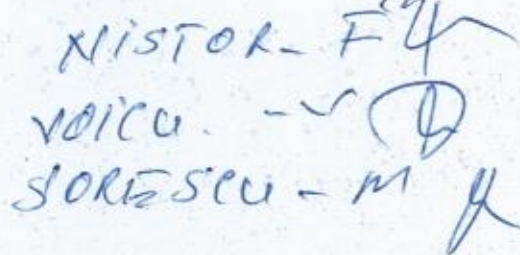 NISTOR - F
VOICU. - V
SORESCU - M